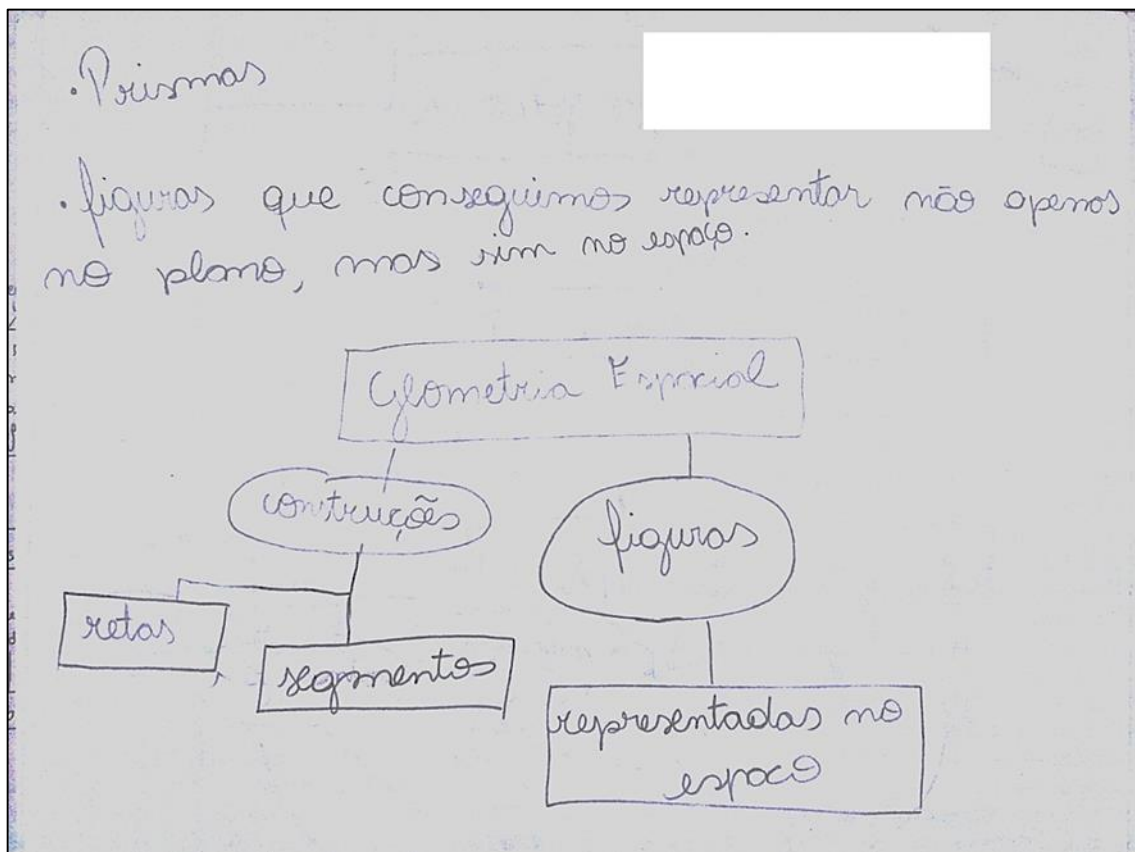 · Prismas
· figuras que conseguimos representar não apenas
no plano, mas sim no espaço.
Geometria Espacial
construções
figuras
retas
segmentos
representadas no
espaço